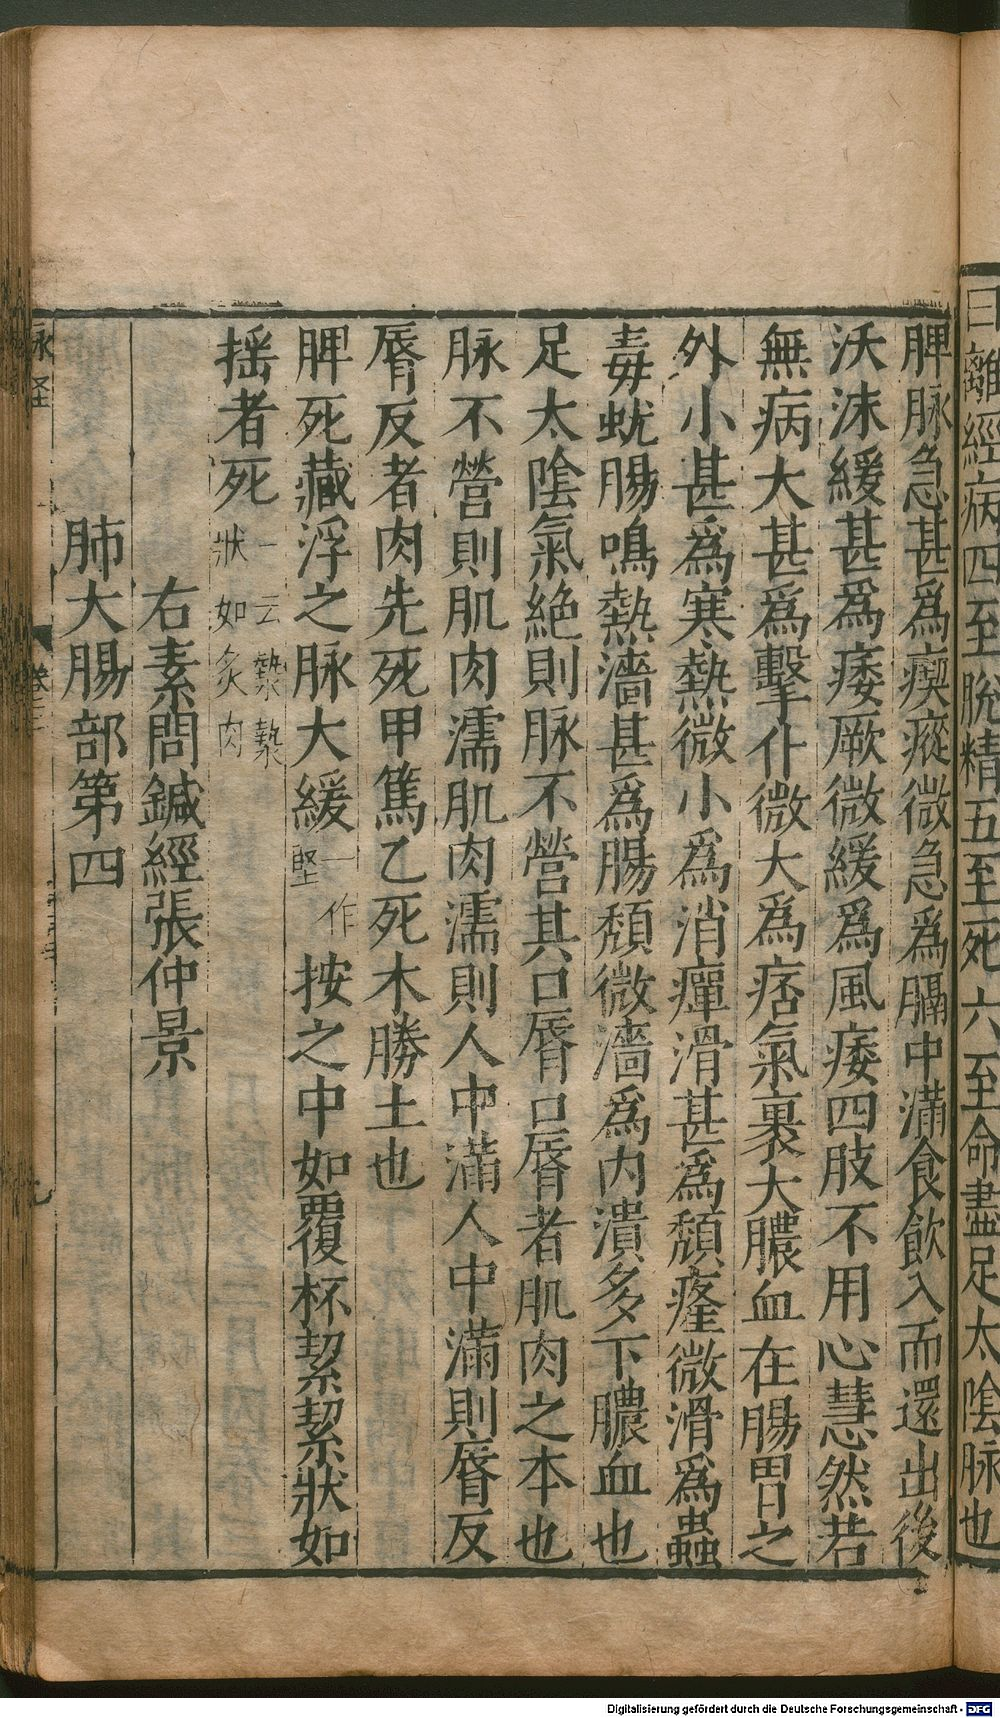 曰離經病四至脫精五至死六至命盡足太陰脉也
脾脉急甚爲瘈瘲微急爲膈中滿食飲入而還出後
沃沫緩甚爲痿厥微緩爲風痿四肢不用心慧然若
無病大甚爲擊仆微大爲痞氣裹大膿血在腸胃之
外小甚爲寒熱微小爲消癉滑甚爲㿗癃微滑爲蟲
毒蚘腸鳴熱濇甚爲腸㿗微濇爲内潰多下膿血也
足太陰氣絶則脉不營其口脣口脣者肌肉之本也
脉不營則肌肉濡肌肉濡則人中滿人中滿則脣反
脣反者肉先死甲篤乙死木勝土也
脾死藏浮之脉大緩一作堅按之中如覆杯絜絜狀如
揺者死一云漐漐狀如炙肉
右素問鍼經張仲景
肺大腸部第四
脉经 卷三 九
Digitalisierung gefördert durch die Deutsche Forschungsgemeinschaft - DFG